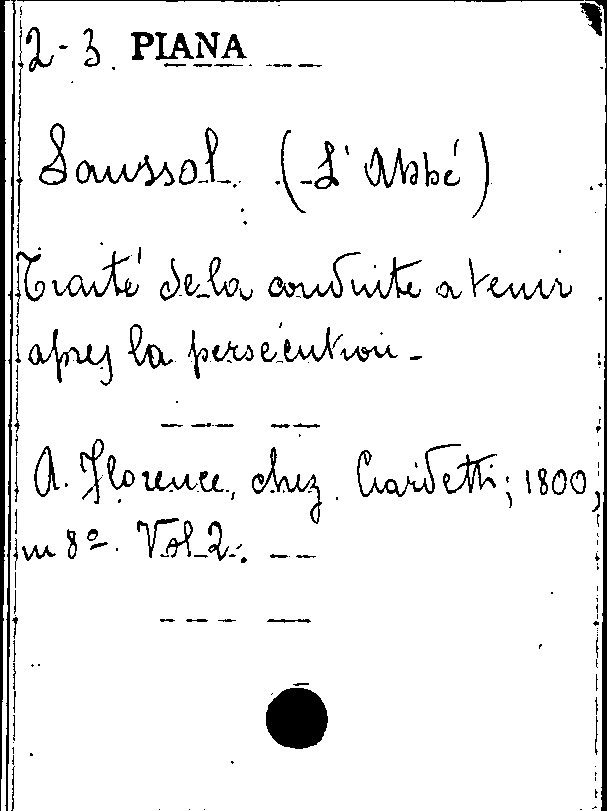 2-3. PIANA
Saussol (L'Abbé)
Traité de la conduite a tenir
apres la persécution -
A. Florence, chez Ciardetti; 1800,
in 8º. Vol 2.